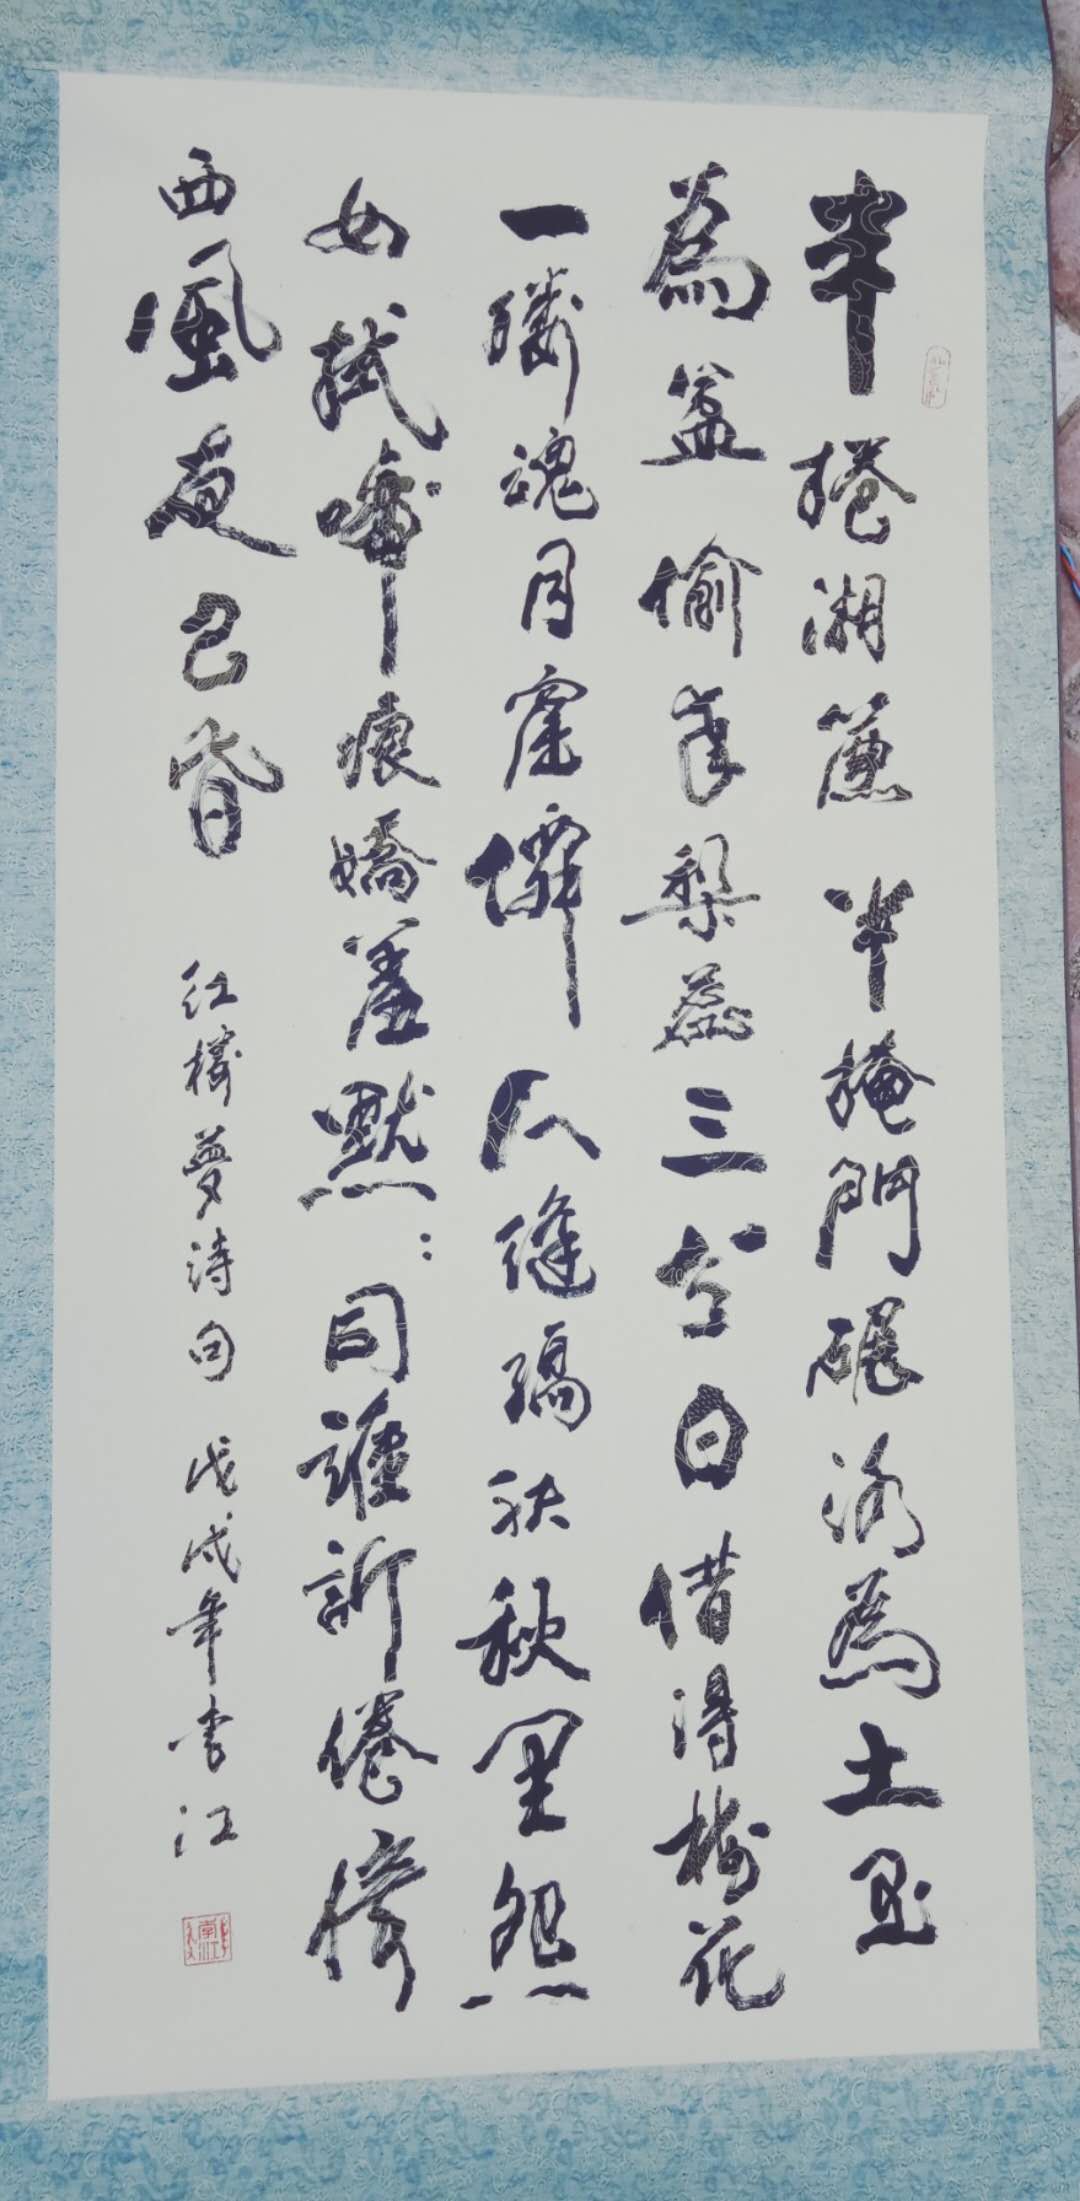 半捲湘簾半掩門碾冰為土玉
為盆偷來梨蕊三分白借得梅花
一縷魂月窟僊人縫縞袂秋閨怨
女拭啼痕嬌羞默：同誰訴倦倚
西風夜已昏 红樓夢詩句 戊戌年书江